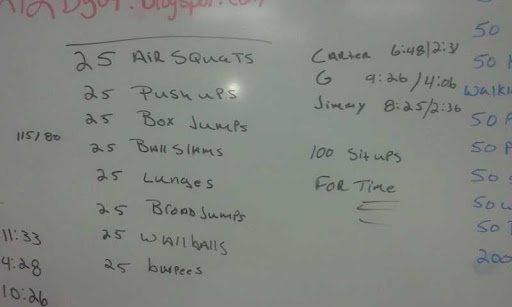 blogspot.com
25 AIR SQUATS
25 PUSHUPS
25 BOX JUMPS
115/80
25 BALL SLAMS
25 LUNGES
25 BROAD JUMPS
25 WALLBALLS
25 burpees
11:33
4:28
10:26
CARTER 6:48/2:31
G 9:26/4:06
Jimmy 8:25/2:36
100 Situps
FOR TIME
50
50
Walki
50 P
50 P
50
50
50
200